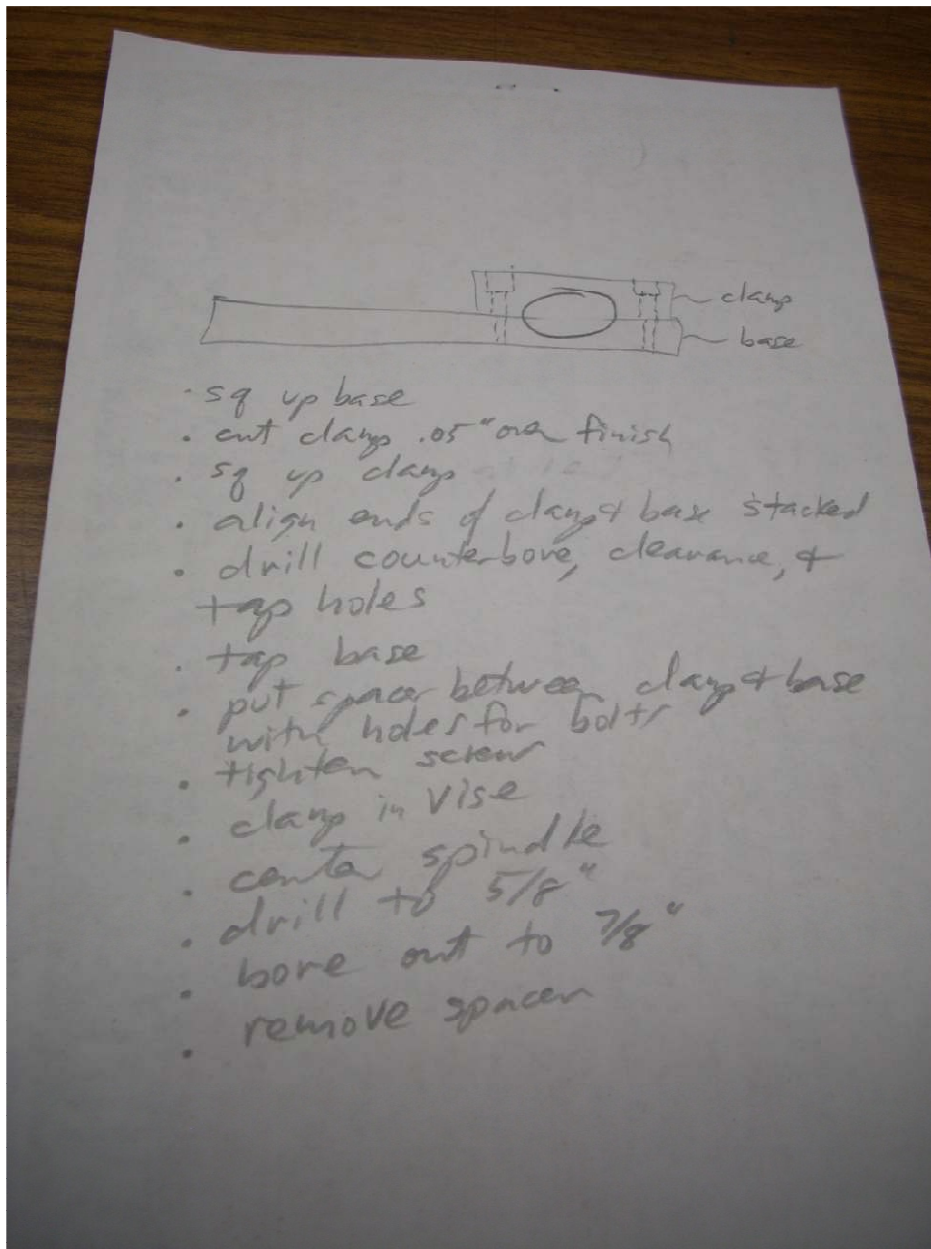 clamp
base
· sq up base
· cut clamp .05" over finish
· sq up clamp
· align ends of clamp & base stacked
· drill counterbore, clearance, &
tap holes
· tap base
· put spacer between clamp & base
with holes for bolts
· tighten screw
· clamp in vise
· center spindle
· drill to 5/8"
· bore out to 7/8"
· remove spacer